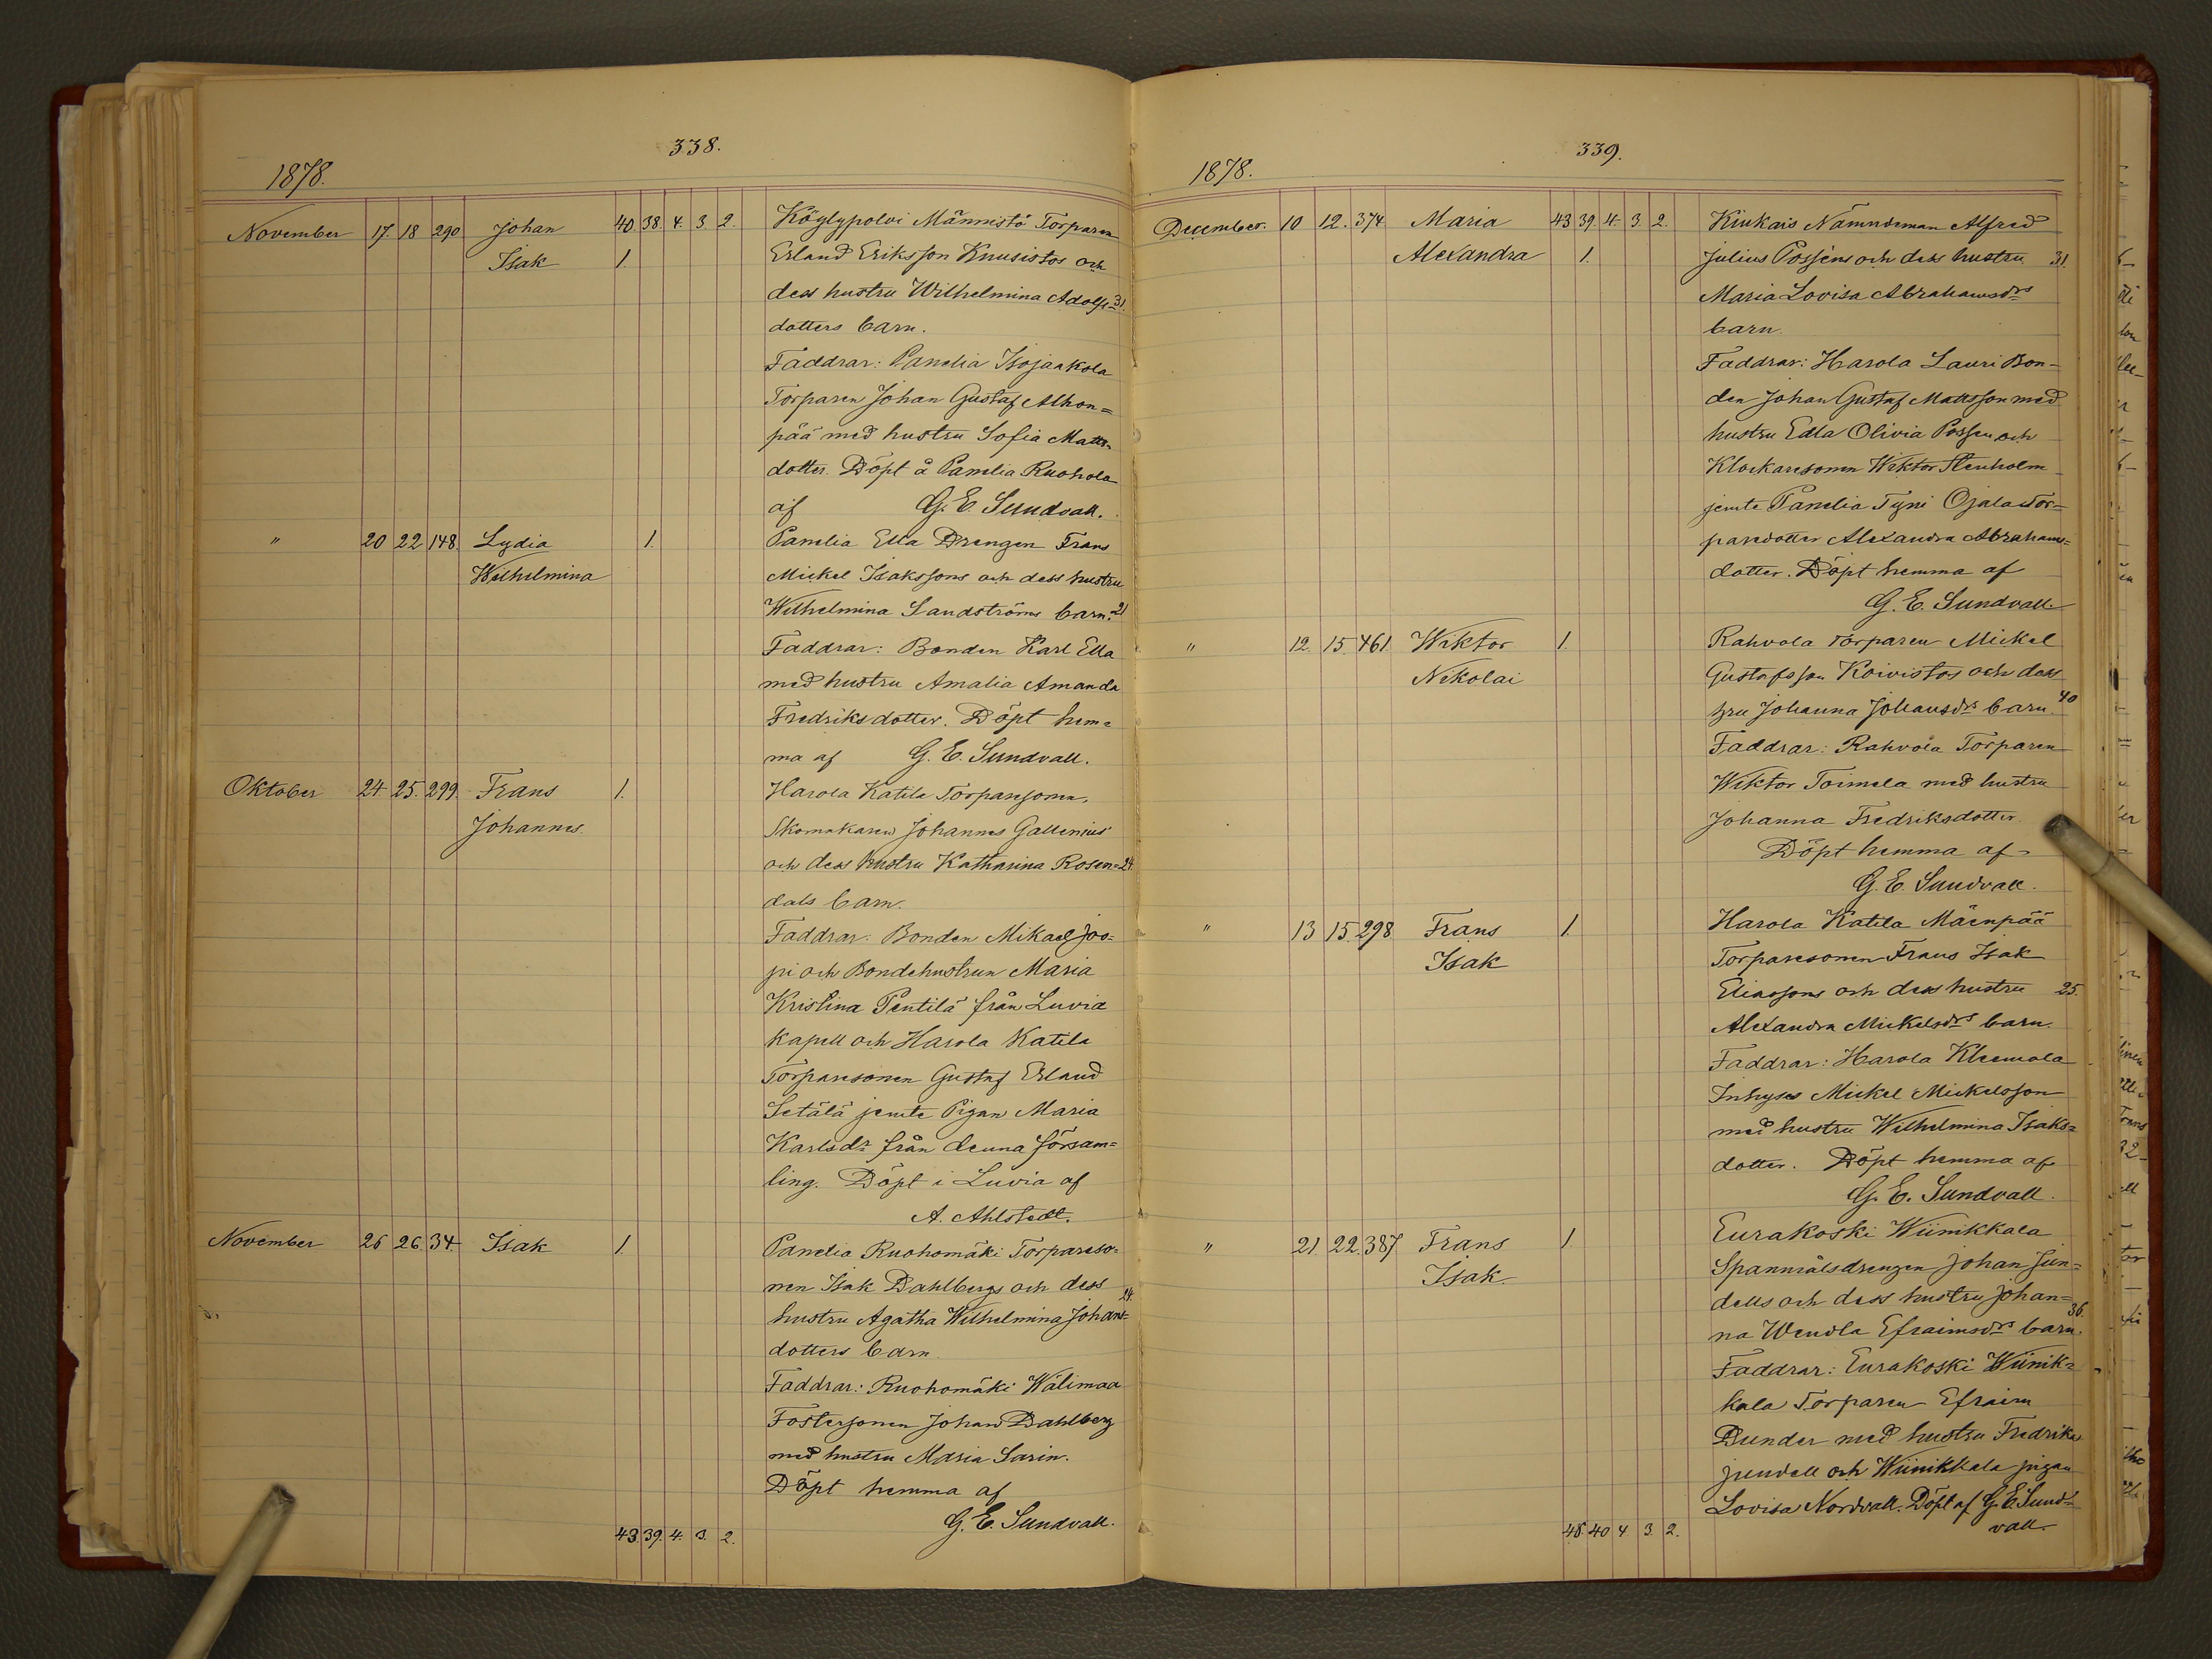 338.
1878.
November 17. 18 290 Johan 40. 38. 4. 3. 2. Köylypolvi Männistö Torparen
Isak 1. Erland Eriksson Knusistos och
dess hustru Wilhelmina Adolfs= 31.
dotters barn.
Faddrar: Panelia Isojaakola
Torparen Johan Gustaf Alhon=
pää med hustru Sofia Matts=
dotter. Döpt å Panelia Ruohola
af G. E. Sundvall.
" 20 22 148. Lydia 1. Panelia Ella Drengen Frans
Wilhelmina Mickel Isakssons och dess hustru
Wilhelmina Sandströms barn. 21
Faddrar: Bonden Karl Ella
med hustru Amalia Amanda
Fredriksdotter. Döpt hem=
ma af G. E. Sundvall.
Oktober 24. 25. 299. Frans 1. Harola Katila Torparesonen,
Johannes. Skomakaren Johannes Gallenius
och dess hustru Katharina Rosen= 24.
dals barn.
Faddrar: Bonden Mikael Joo=
pi och Bondehustrun Maria
Kristina Pentilä från Luvia
kapell och Harola Katila
Torparesonen Gustaf Erland
Setälä jemte Pigan Maria
Karlsdr från denna försam=
ling. Döpt i Luvia af
A. Ahlstedt.
November 26 26. 34. Isak 1. Panelia Ruohomäki Torpareso=
nen Isak Dahlbergs och dess
24.
hustru Agatha Wilhelmina Johans=
dotters barn.
Faddrar: Ruohomäki Wälimaa
Fostersonen Johan Dahlberg
med hustru Maria Sarin.
Döpt hemma af
G. E. Sundvall.
43. 39. 4. 3. 2.
339.
1878.
December. 10 12. 374. Maria 43 39. 4. 3. 2. Kiukais Nämndeman Alfred
Alexandra 1. Julius Possens och dess hustru 31.
Maria Lovisa Abrahamsdrs
barn.
Faddrar: Harola Lauri Bon=
den Johan Gustaf Mattsson med
hustru Edla Olivia Possen och
Klockaresonen Wiktor Stenholm
jemte Panelia Tyni Ojala Tor=
paredotter Alexandra Abrahams=
dotter. Döpt hemma af
G. E. Sundvall.
" 12. 15. 461. Wiktor 1. Rahvola Torparen Mickel
Nikolai Gustafsson Koivistos och dess
hru Johanna Johansdrs barn. 40
Faddrar: Rahvola Torparen
Wiktor Toimela med hustru
Johanna Fredriksdotter.
Döpt hemma af
G. E. Sundvall.
" 13 15. 298. Frans 1. Harola Katila Mäenpää
Isak Torparesonen Frans Isak
Eliassons och dess hustru 25.
Alexandra Mickelsdrs barn.
Faddrar: Harola Kleemola
Inhyses Mickel Mickelsson
med hustru Wilhelmina Isaks=
dotter. Döpt hemma af
G. E. Sundvall.
" 21. 22. 387. Frans 1. Eurakoski Wiinikkala
Isak. Spanmålsdrengen Johan Jun=
dells och dess hustru Johan=
36.
na Wendla Efraimsdrs barn.
Faddrar: Eurakoski Wiinik=
kala Torparen Efraim
Dunder med hustru Fredrika
Jundell och Wiinikkala pigan
Lovisa Nordvall. Döpt af G. E. Sund=
vall.
48. 40 4 3. 2.